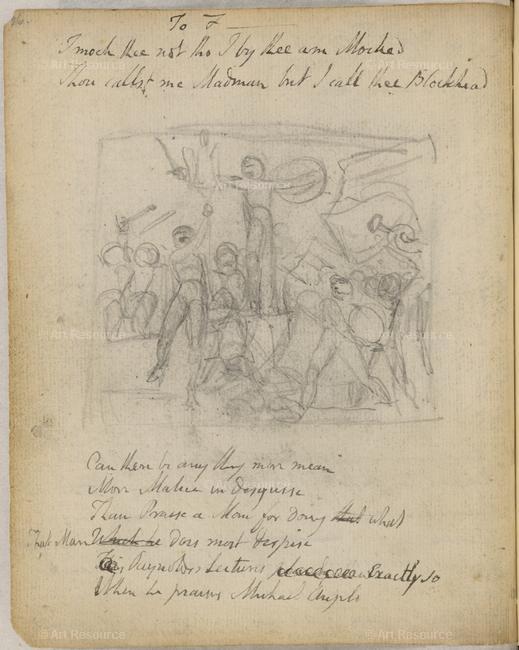 26.
To F———
I mock thee not tho I by thee am Mocked
Thou callst me Madman but I call thee Blockhead
Can there be any thing more mean
More Malice in disguise
Than Praise a Man for doing that what
That Man Which he does most despise
This Reynolds Lectures Exactly so
When he praises Michael Angelo
© Art Resource